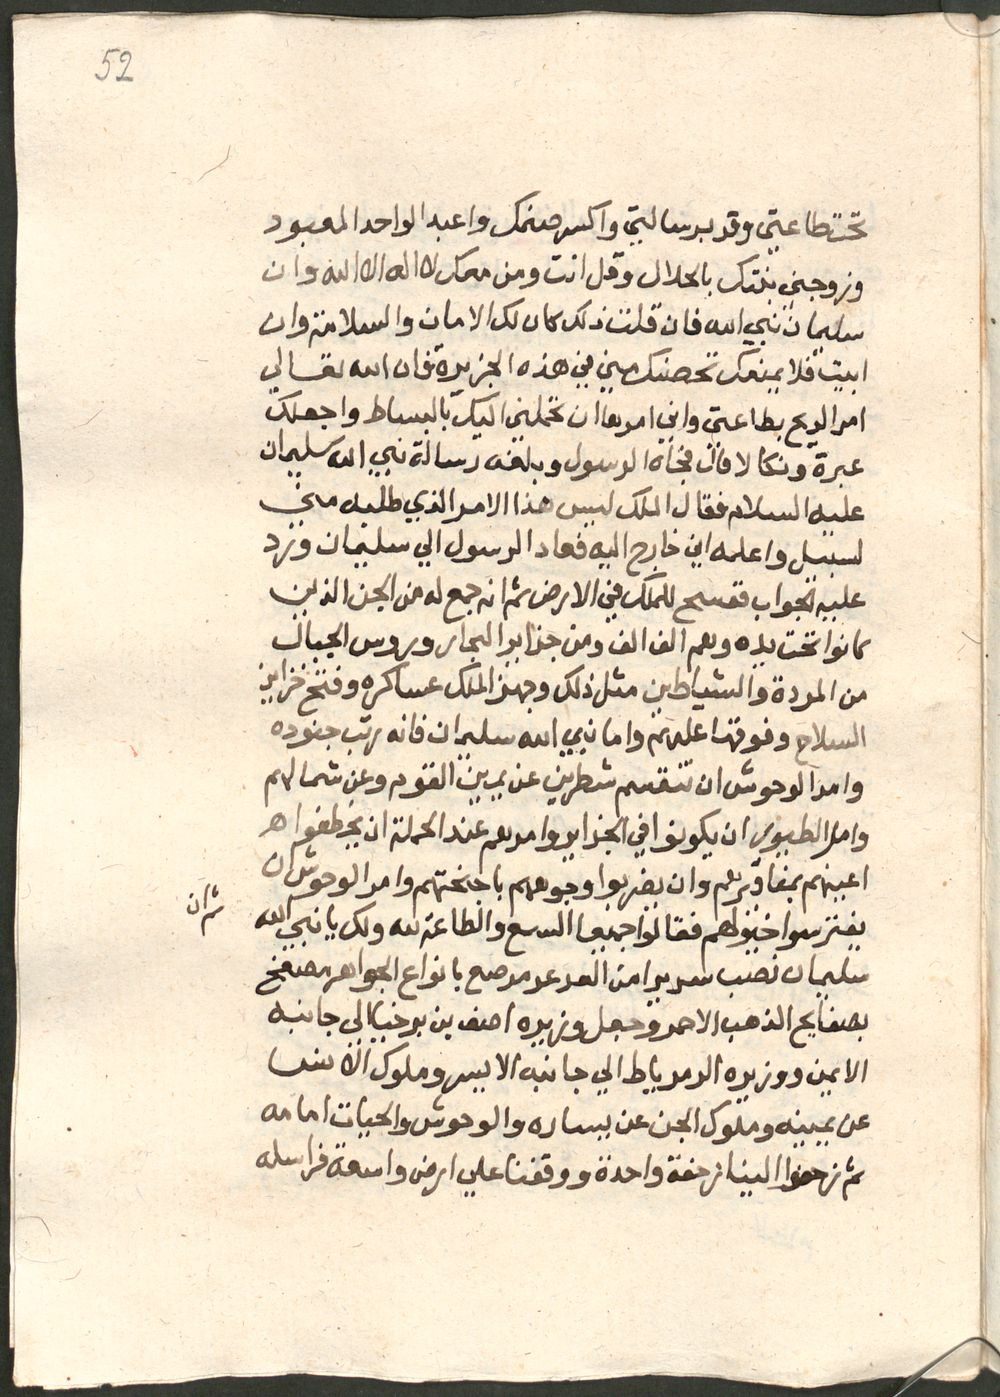 52
تحت طاعتي وقد برسالتي واكسر صنمك واعبد الواحد المعبود
وزوجني بنتك بالحلال وقل انت ومن معك لا اله الا الله وان
سليمان نبي الله فان قلت ذلك كان لك الامان والسلامة وان
ابيت فلا يمنعك تحصنك مني في هذه الجزيرة فان الله تعالي
امر الريح بطاعتي واني امرها ان تحملني اليك بالبساط واجعلك
عبرة ونكالا قال فجاه الرسول وبلغه رسالة نبي الله سليمان
عليه السلام فقال الملك ليس هذا الامر الذي طلبه مني
لسبيل واعلمه اني خارج اليه فعاد الرسول الي سليمان ورد
عليه الجواب ففسح للملك في الارض ثم انه جمع له من الجن الذين
كانوا تحت يده وهم الف الف ومن جزاير البحار وروس الجبال
من المردة والشياطين مثل ذلك وجهز الملك عساكره وفتح خزاين
السلاح وفوقها عليهم واما نبي الله سليمان فانه رتب جنوده
وامر الوحوش ان تنقسم شطرين عن يمين القوم وعن شمالهم
وامر الطيور ان يكونوا في الجزاير وامرهم عند الحملة ان يخطفوا
اعينهم بمناقرهم وان يضربوا وجوههم باجنحتهم وامر الوحوش ان
يفترسوا خيولهم فقالوا جميعا السمع والطاعة لله ولك يا نبي الله
ثم ان
سليمان نصب سريرا من المرمر مرصع بانواع الجواهر مصفح
بصفايح الذهب الاحمر وجعل وزيره اصف بن برخيا الي جانبه
الايمن ووزيره الدمرياط الي جانبه الايسر وملوك الانس
عن يمينه وملوك الجن عن يساره والوحوش والحيات امامه
ثم زحفوا الينا زحفة واحدة ووقفنا علي ارض واسعة فراسله